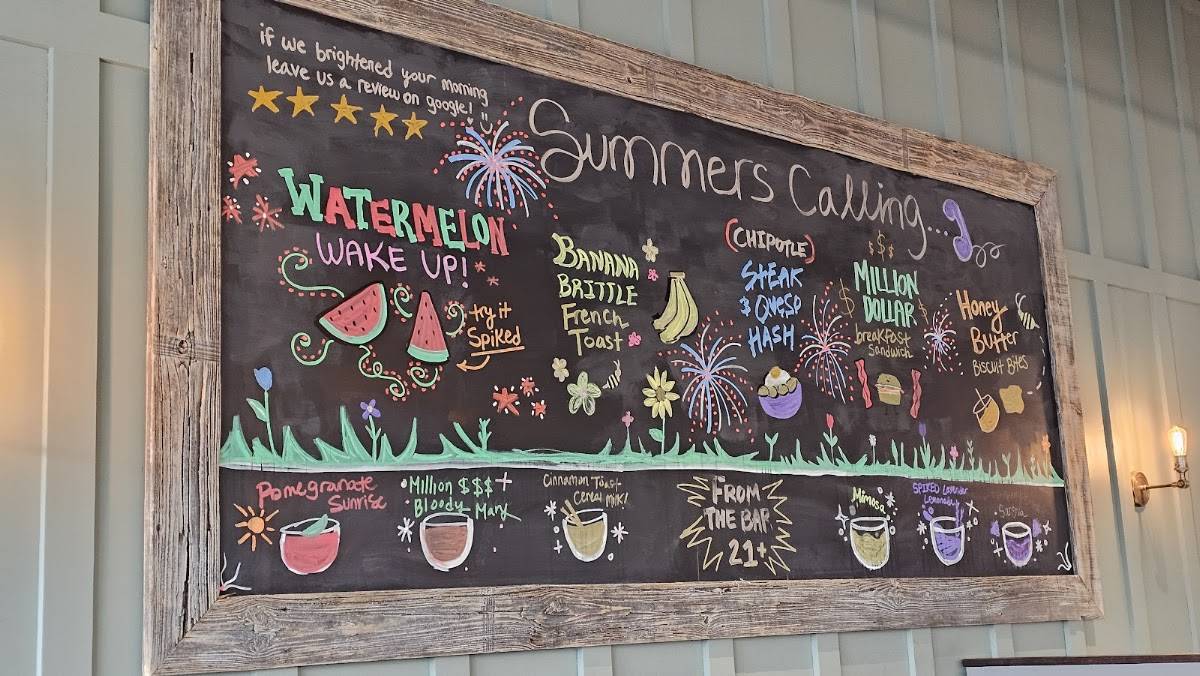 if we brightened your morning
leave us a review on google!
Summers Calling...
WATERMELON
WAKE UP!
try it
Spiked
BANANA
BRITTLE
French
Toast
(CHIPOTLE)
STEAK
& QUESO
HASH
$$$
MILLION
DOLLAR
breakfast
sandwich
Honey
Butter
Biscuit Bites
Pomegranate
Sunrise
Million $$$
Bloody Mary
Cinnamon Toast
cereal milk!
FROM
THE BAR
21+
Mimosa
SPIKED Lavender
Lemonade
Sangria